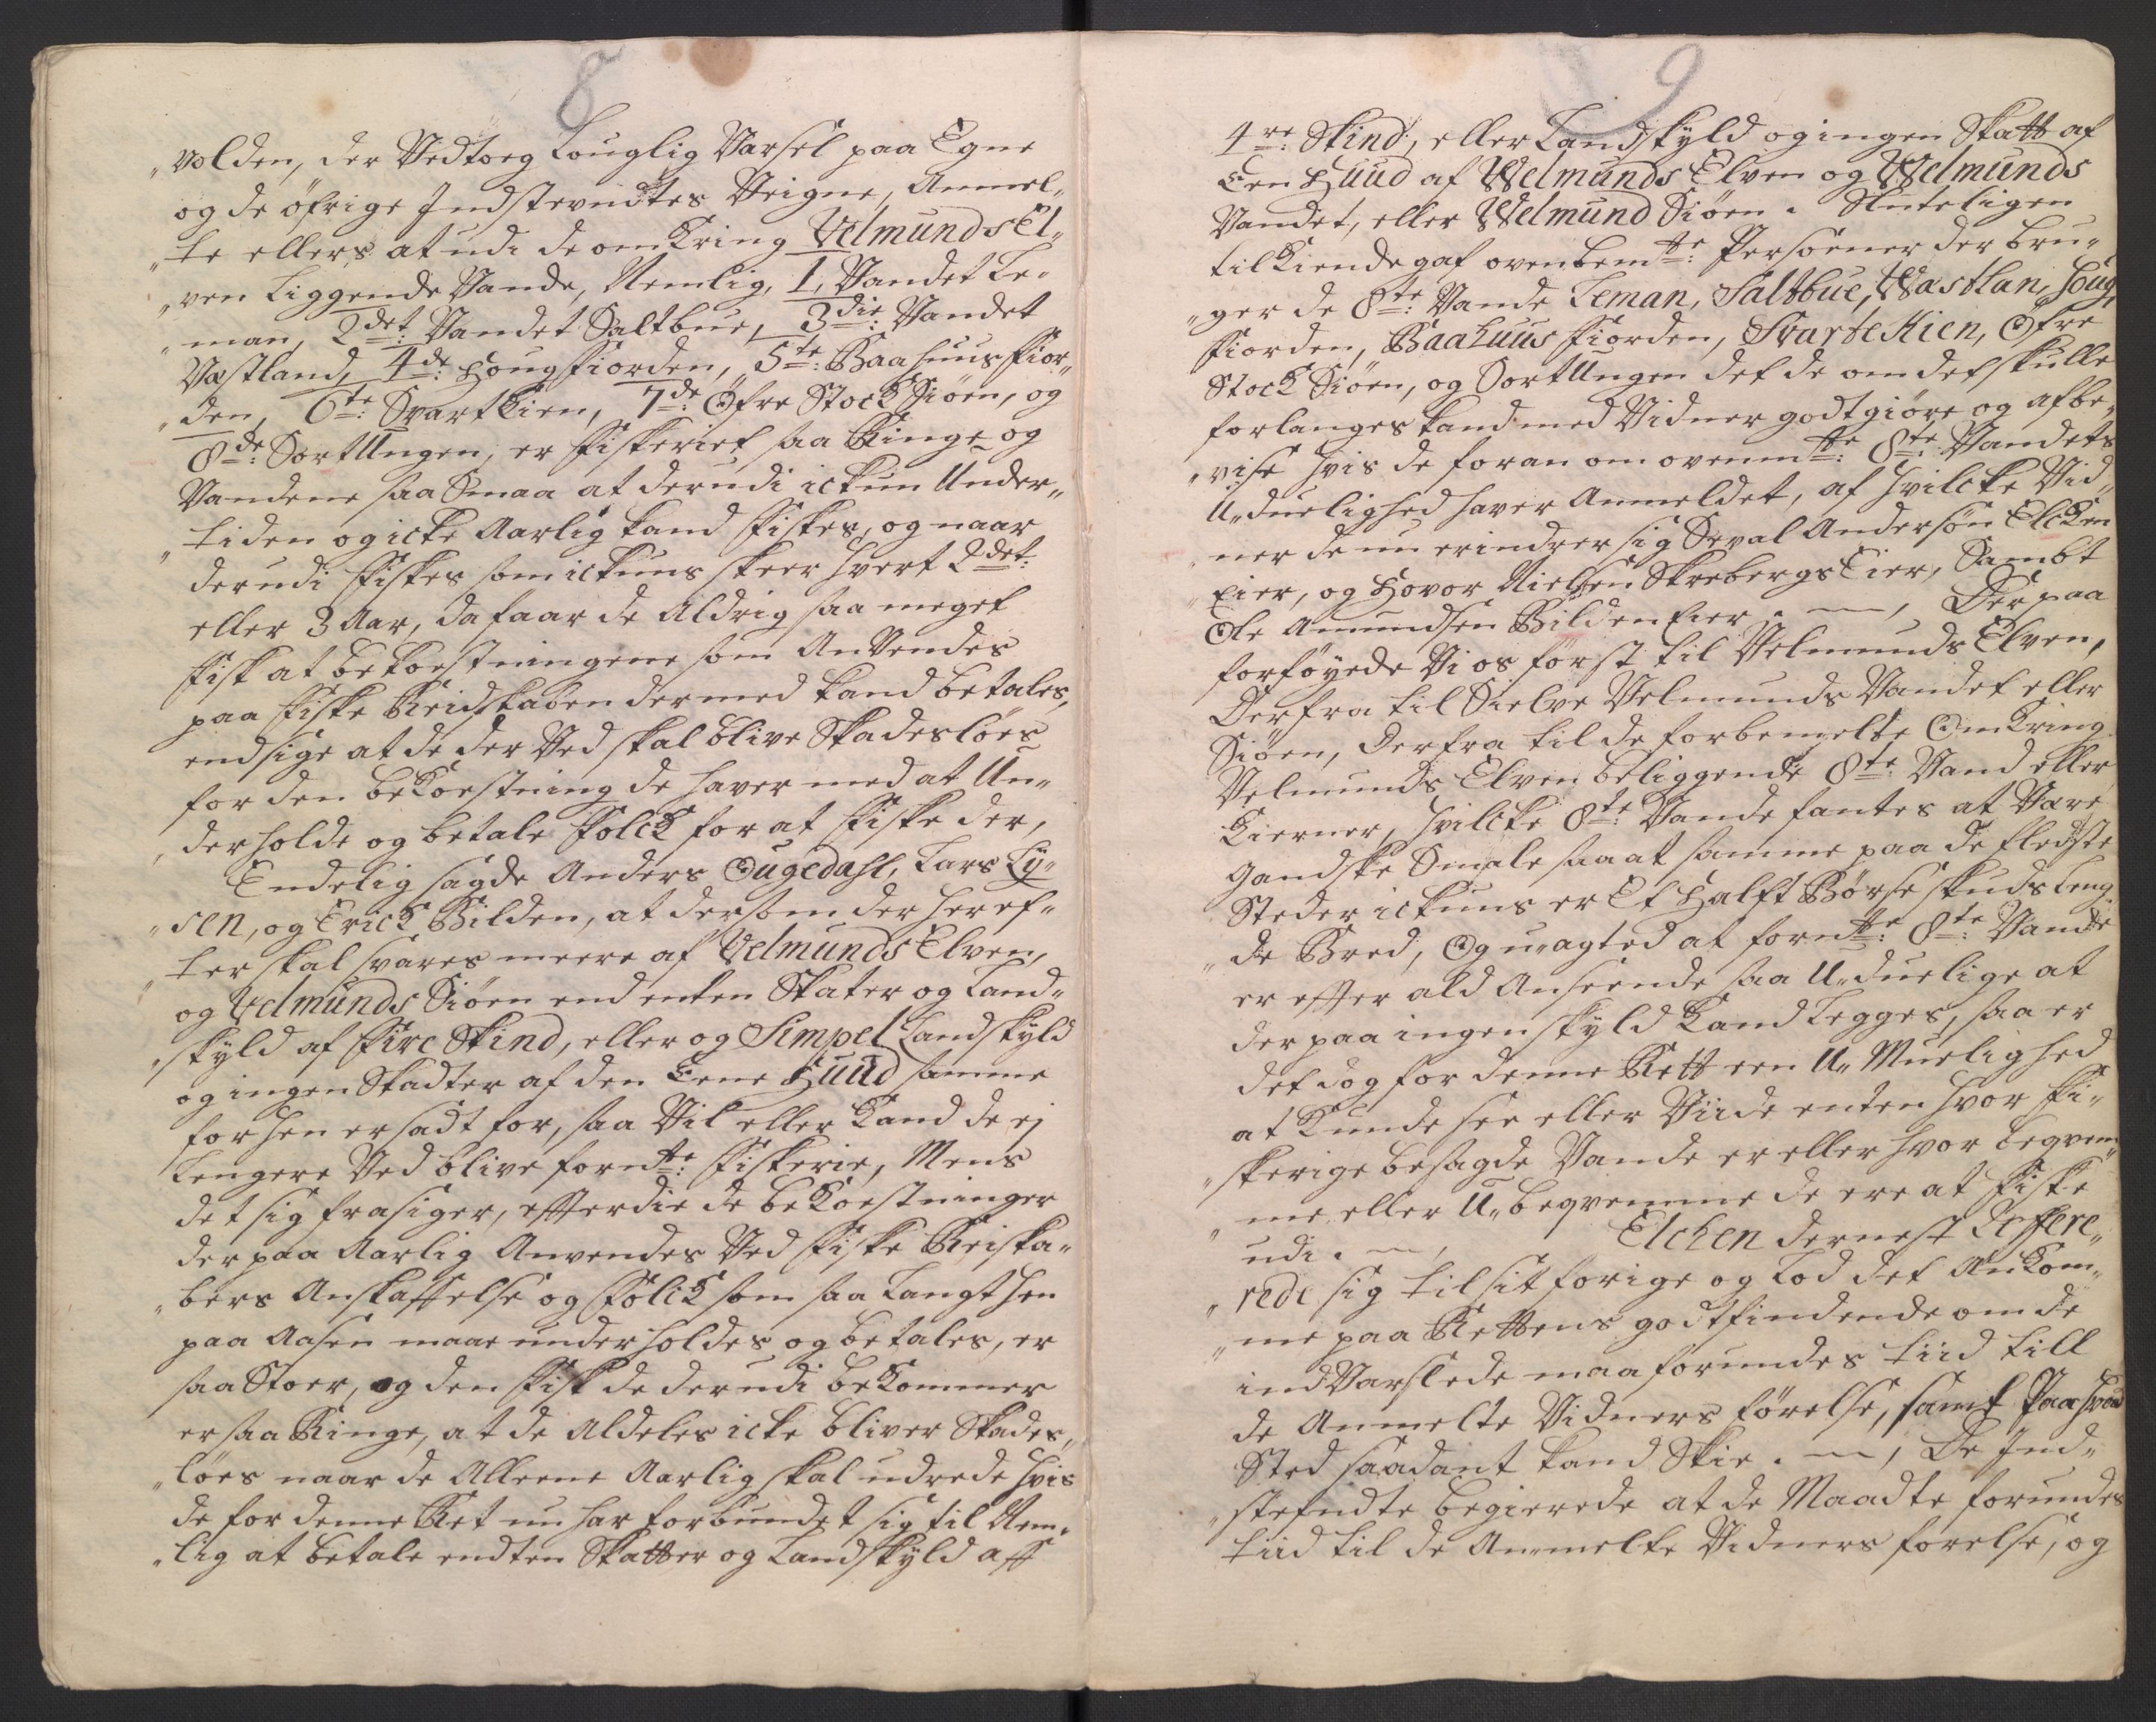 8
„volden, der Vedtoeg Louglig Varsel paa Egne
og de öfrige Indstevndtes Veigne, Anmel„
„te ellers at udi de omkring Velmunds El„
„ven Liggende Vande, Nemlig, 1, Vandet Le„
„man, 2det: Vandet Saltbue, 3die: Vandet
Vastland, 4de: Hougfiorden, 5te: Baahuus fior„
„den, 6te: Svartkien, 7de: Öfre Stock Siöen, og
8de: Sortungen, er fiskeriet saa Ringe og
Vandene saa Smaa at derudi ickun Under„
„tiden og icke Aarlig kand fiskes, og naar
derudi fiskes som ickuns skeer hvert 2det:
eller 3 Aar, da faar de Aldrig saa meget
fisk at bekoestningene som Anvendes
paa fiske Reidskaben dermed kand betales,
endsige at de der Ved skal blive Skadeslöes
for den bekoestning de haver med at Un„
„derholde og betale folck for at fiske der,
Endelig sagde Anders Ougedahl, Lars Ly„
„sen, og Erick Bilden, at dersom der heref„
„ter skal svares meere af Velmunds Elven,
og Velmunds Siöen end enten Skater og Land„
„skyld af fire Skind, eller og Simpel Landskyld
og ingen Skadter af den Eene Huud samme
forhen er sadt for, saa Vil eller kand de ej
Lengere Ved blive fornte: fiskerie, Mens
det sig frasiger, efterdie de bekoestninger
der paa Aarlig Anvendes Ved fiske Reiska„
„bers Anskaffelse og folck som saa Langt hen
paa Aasen maae underholdes og betales, er
saa Stoer, og den fisk de derudi bekommer
er saa Ringe, at de Aldeles icke bliver Skades„
„löes naar de Alleene Aarlig skal udrede hvis
de for denne Ret nu har forbundet sig til Nem„
„lig at betale endten Skatter og Landskyld aff
9
4re: Skind, eller Landskyld og ingen Skatt af
Een Huud af Welmunds Elven og Welmunds
Vandet, eller Welmund Siöen. Sluteligen
tilkiende gaf ovenbemte: Persoener der bru„
„ger de 8te: Vande Leman, Saltbue, Wastlan, Houg
fiorden, Baahuus fiorden, Svarte Kien, Öfre
Stock Siöen, og Sortungen det de om det skulle
forlanges kand med Vidner godtgiöre og afbe„
„vise hvis de foran om ovenmte: 8te: Vandets
U„duelighed haver Anmeldet, af hvilcke Vid„
„ner de nu erindrer sig Seval Andersön Elcken
Eier, og Hovor Nielsen Skrebergs Eier, Sambt
Ole Amundsen Bilden Eier. —, Der paa
forföyede Vi os först til Velmunds Elven,
Derfra til Sielve Velmunds Vandet eller
Siöen, Derfra til de forbemelte Omkring
Velmunds Elven beliggende 8te: Vand eller
Kierner, hvilcke 8te: Vande fantes at Være
gandske Smale saa at samme paa de fledste
Steder ickuns er Et Halft Börse skuds Leng„
„de Bred, Og u„agted at fornte: 8te: Vande
er efter ald Anseende saa U„duelige at
der paa ingen skyld kand Legges, saa er
det dog for denne Rett een U„Muelighed
at kunde see eller Viide enten hvor fi„
„skerige besagde Vande er eller hvor beqvem„
„me eller U„beqvemme de ere at fiske
udi. —, Elcken dernest Reffere„
„rede sig til sit forige og Lod det Ankom„
„me paa Rettens godtfindende om de
ind Varslede maa forundes tiid till
de Anmelte Vidners förelse, samt paa hvad
Sted saadant kand Skie. —, De Ind„
„stefndte begierede at de Maadte forundes
tiid til de Anmelte Vidners förelse, og